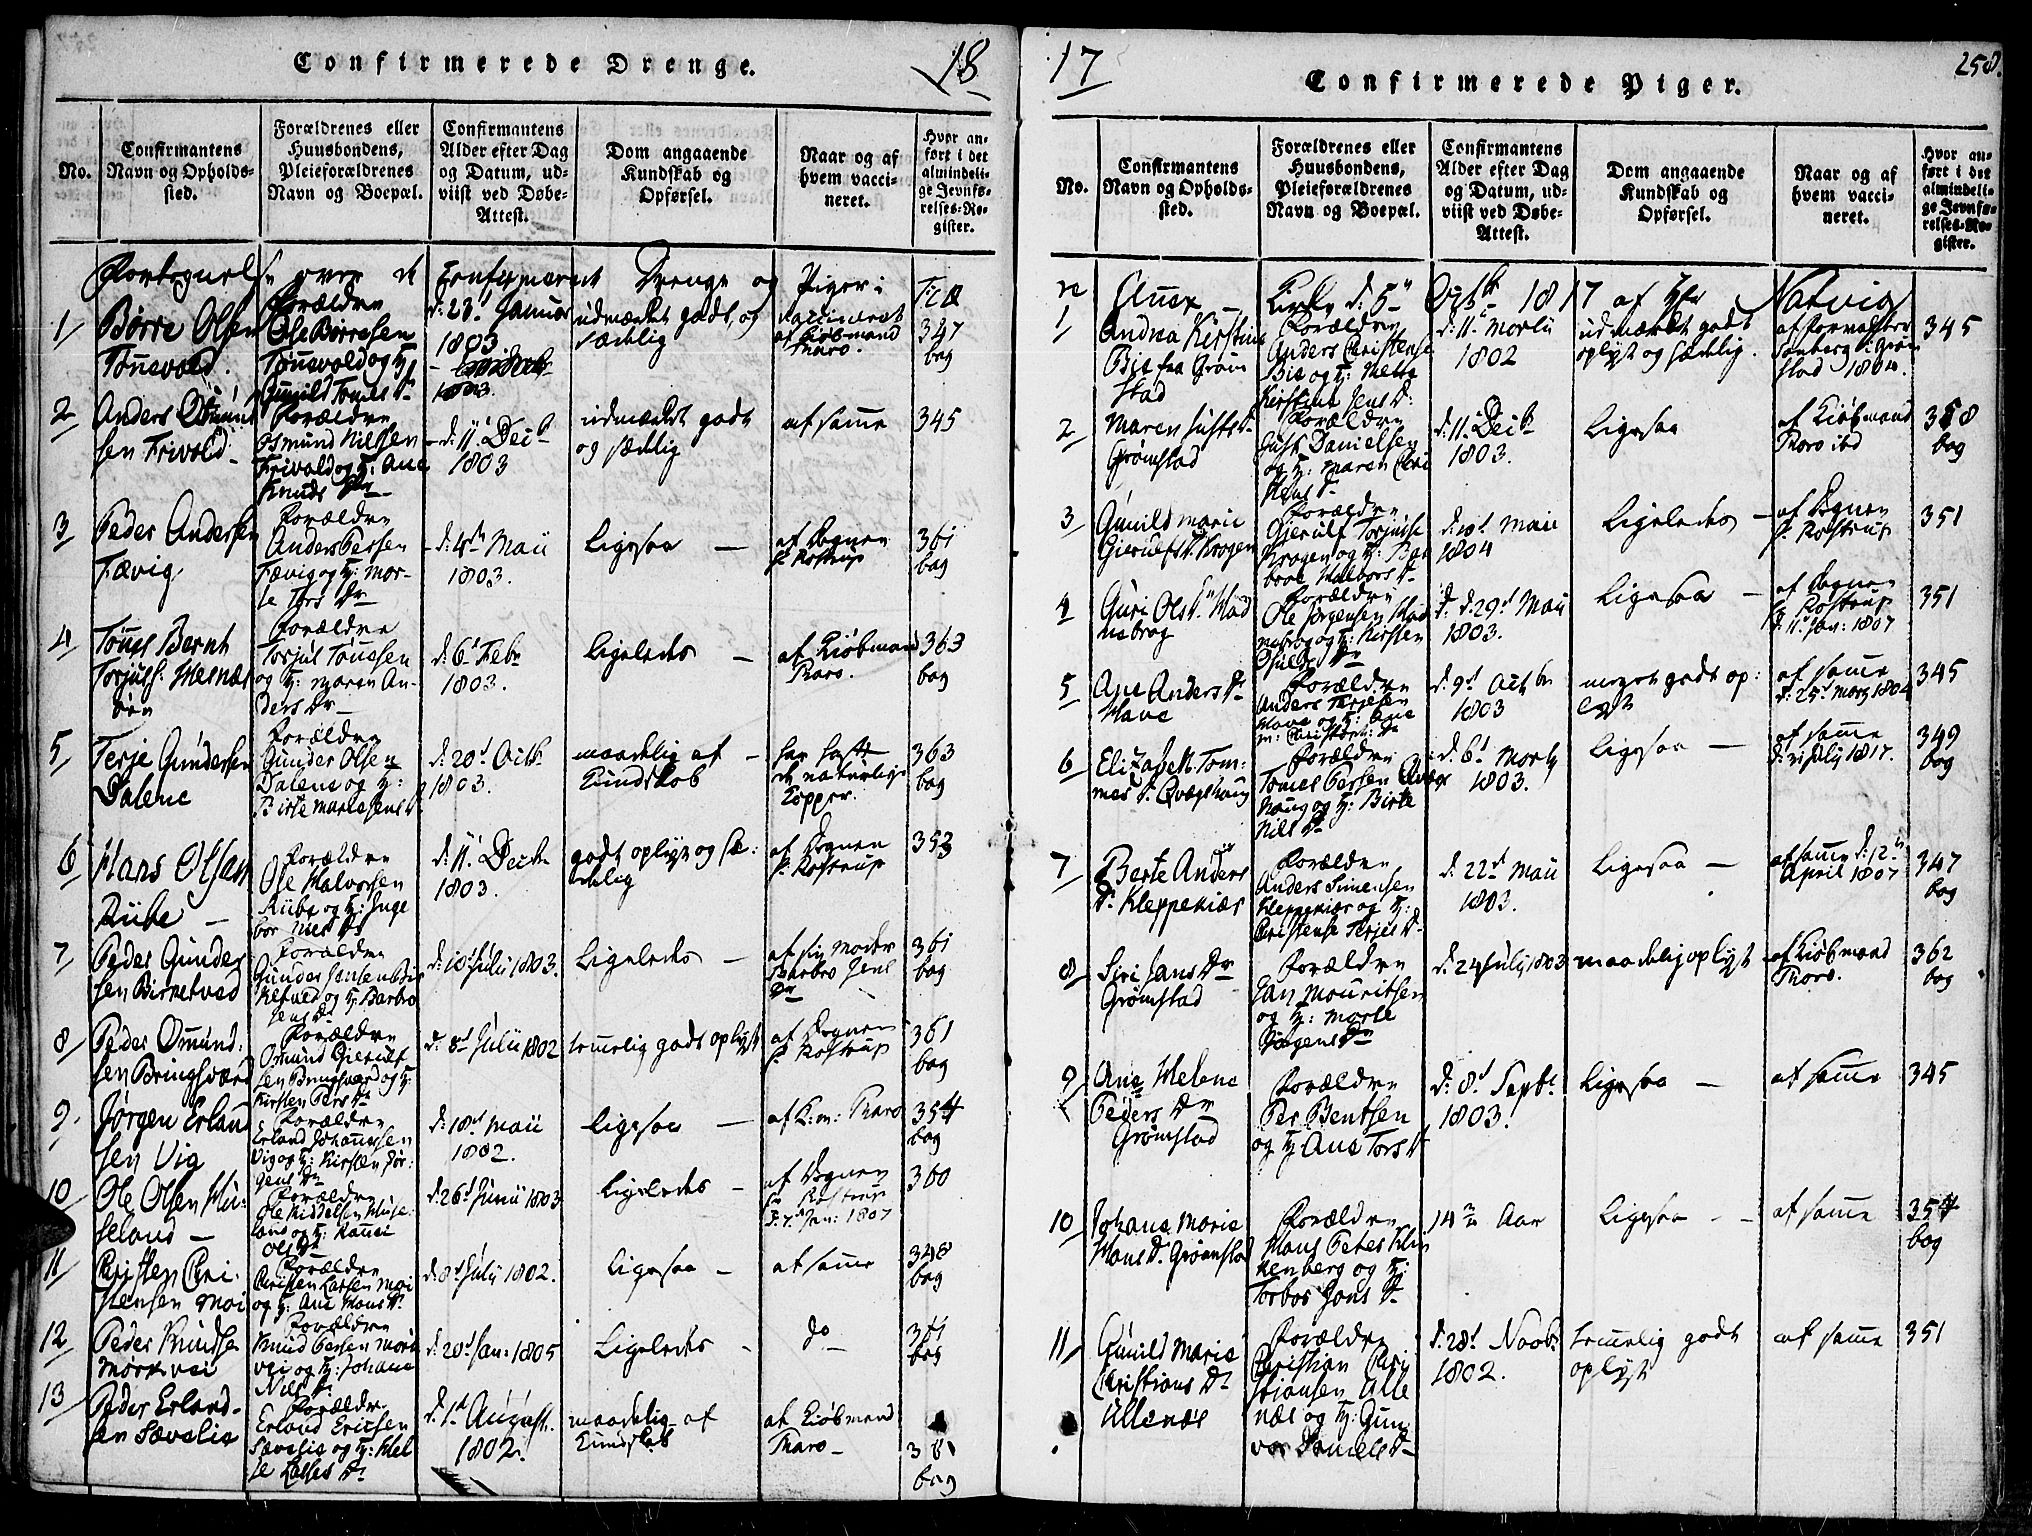 Confirmerede Drenge.
18
No.
Confirmantens
Navn og Opholds-
sted.
Forældrenes eller
Huusbondens,
Pleieforældrenes
Navn og Boepæl.
Confirmantens
Alder efter Dag
og Datum, ud-
viist ved Døbe-
Attest.
Dom angaaende
Kundskab og
Opførsel.
Naar og af
hvem vacci-
neret.
Hvor an-
ført i det
almindeli-
ge Jevnfø-
relses-Re-
gister.
Fortegnelse over de Confirmeret Drenge og Piger i
1
Børre Olsen
Tønevold.
Forældre
Ole Børresen
Tønnevold og H:
Gunild Tomes Dr
d: 23d Januar
1803
udmærket godt og
sædelig
vaccineret
af Kiøbmand
Tharo.
347
bag
2
Anders Osmund
sen Frivold
Forældre
Osmund Nilssen
Frivold og H: Ane
Knuds Dr
d: 11t Decbr
1803
udmærket godt
og sædelig
af samme
345
3
Peder Andersen
Fævig
Forældre
Anders Perssen
Fævig og H: Mar-
te Tors Dr
d: 4de Maii
1803.
Ligesaa
af Sognepr
P. Rostrup
361
bag
4
Tønes Bernt
Torjuls: Hesnæs
øen
Forældre
Torjul Tønessen
og H: Maren An-
ders Dr
d: 6t Febr
1803.
Ligeledes
af Kiøbmand
Tharo.
363
bag
5
Terje Gundersen
Dalene
Forældre
Gunder Olsen
Dalene og H:
Birte Mariesens Dr
d: 20d Octbr
1803.
maadelig af
Kundskab
har haft
de naturlige
Kopper.
363
bag
6
Hans Olsen
Riibe
Forældre
Ole Halvorsen
Riibe og H: Inge
bor Niels Dr
d: 11t Decbr
1803.
godt oplyst og sæ-
delig
af Sognepr
P. Rostrup
353
7
Peder Gunder
sen Birketved
Forældre
Gunder Jensen Bir
ketved og H: Barbro
Jens Dr
d: 10d Julii 1803.
Ligeledes
af sin Moder
Barbro Jens
Dr
361
bag
8
Peder Omund:
sen Bringsværd
Forældre
Omund Gierulf
sen Bringsværd og H:
Kirsten Pers Dr
d: 8d Julii 1802
temelig godt oplyst
af Sognepr
P. Rostrup
361
bag
9
Jørgen Erlan
sen Vig
Forældre
Erland Johannessen
Vig og H: Kirsten Jør-
gens Dr
d: 18d Maii
1802.
Ligesaa
af K:m: Tharo
354
bag
10
Ole Olsen Mu-
seland
Forældre
Ole Kiddelsen Muse-
land og H:
Ols Dr
d: 26d Junii 1803
Ligeledes
af Sognepr
P. Rostrup
d: 7d Jan: 1807
360
11
Christen Chri-
stensen Moi
Forældre
Christen Larsen Moi
og H: Ane Hans Dr
d: 8d Julij 1802.
Ligesaa
af samme
348
bag
12
Peder Knudse
Mørkvei
Forældre
Knud Persen Mørk
vei og H: Johane
Nils Dr
d: 20d Jan: 1805
Ligeledes
do
361
bag
13
Peder Erland-
sen Sævelie
Forældre
Erland Ericsen
Sævelie og H: Hel-
je Lasses Dr
d: 1d August
1802.
maadelig af
Kundskab
af Kiøbmand
Tharo
361
bag
17
Confirmerede Piger.
258.
No.
Confirmantens
Navn og Opholds-
sted.
Forældrenes eller
Huusbondens,
Pleieforældrenes
Navn og Boepæl.
Confirmantens
Alder efter Dag
og Datum, ud-
viist ved Døbe-
Attest.
Dom angaaende
Kundskab og
Opførsel.
Naar og af
hvem vacci-
neret.
Hvor an-
ført i det
almindeli-
ge Jevnfø-
relses-Re-
gister.
Annex Kirke d: 5te Octbr 1817 af Hr Natvig
1
Andrea Kirstine
Bie fra Grøm
stad
Forældre
Anders Christense
Bie og H: Mette
Kirstine Jens D:
d: 11te Martii
1802
udmærket godt
oplyst og sædelig.
stad 1804.
345
2
Maren Justs Dr
Grømstad
Forældre
Just Danielsen
og H: Maren Chri
stens Dr
d: 11t Decbr
1803.
Ligesaa
af Kiøbmand
Tharo ibd
358
bag
3
Gunild Marie
Gjerulfs Dr Krogen
Forældre
Gjerulf Torjulse
Krogen og H: Bar
broe Halvors Dr
d: 10d Maii
1804
Ligeledes
af Sognepr
P. Rostrup
351
4
Guri Ols Dr Mad
nebrog
Forældre
Ole Jørgensen Mad
nebrog og H: Kirsten
Osulds Dr
d: 29d Maii
1803.
Ligesaa
af Sognepr
P. Rostrup
d: 11t Jan: 1807
351
5
Ane Anders Dr
Have
Forældre
Anders Terjesen
Have og H: Ane
M: Christens Dr
d: 9d Octbr
1803
meget godt op:
lyst
af samme
d: 25d Marts 1804
345
6
Elizabeth Tom-
mes Dr Qvægshaug
Forældre
Tomes Persen Qvægs
haug og H: Birte
Nils Dr
d: 6d Marty
1803.
Ligesaa
af samme
July 1817.
349
bag
7
Berte Anders
Dr Kleppekiær
Forældre
Anders Simensen
Kleppekiær og H:
Christense Terjes Dr
d: 22d Maii
1803.
Ligesaa
af samme d: 12te
April 1807
347
bag
8
Siri Jans Dr
Grømstad
Forældre
Jan Mouritsen
og H: Marte
Aagens Dr
d: 24 July 1803
maadelig oplyst
af Kiøbmand
Tharo.
362
bag
9
Ane Helene
Peders Dr
Grømstad
Forældre
Per Bentsen
og H: Ane Tors Dr
d: 8d Septbr
1803.
Ligesaa
af samme
345
10
Johane Marie
Hans Dr Grømstad
Forældre
Hans Peter Klin
kenberg og H:
Torbor Jans Dr
14n Aar
Ligesaa
af samme
354
bag
11
Gunild Marie
Christians Dr
Ullenæs
Forældre
Christian Chri
stiansen Ulle
næs og H: Gun
vor Daniels Dr
d: 28d Novbr
1802.
temelig godt
oplyst
af samme
351